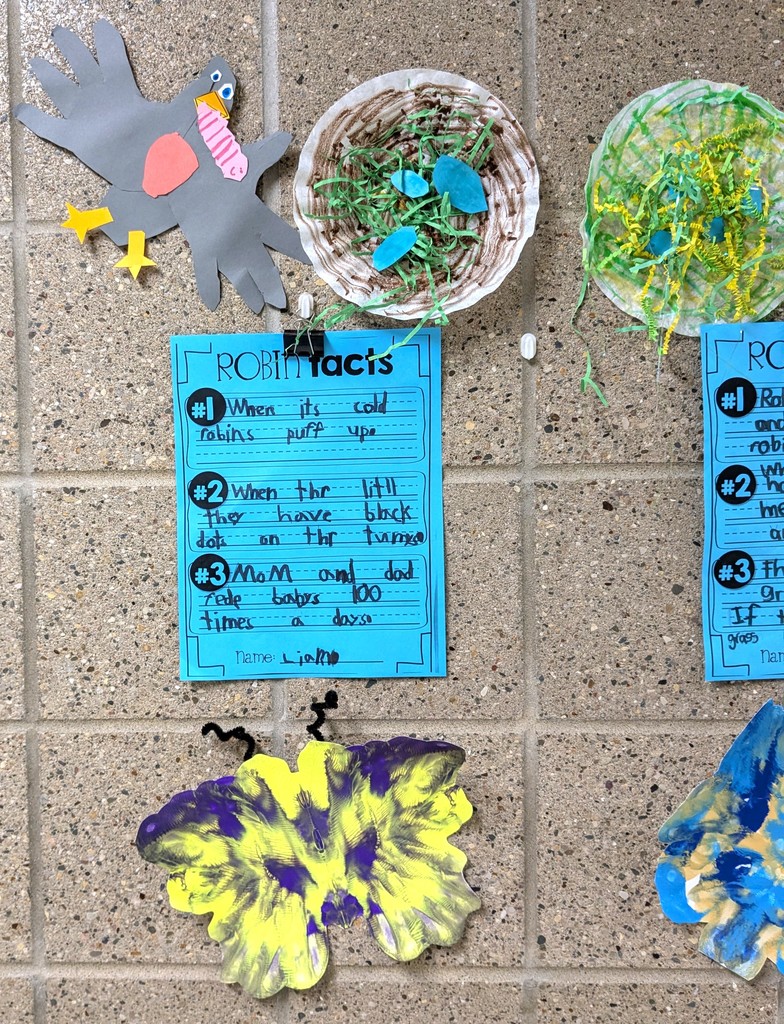 ROBIN facts
#1 When its cold
robins puff up.
#2 When thr litll
they have black
dots on thr
#3 MoM and dad
babys 100
times a days.
Name: Liam
RO
#1
and
robi
#2
me
#3
gr
If
grass